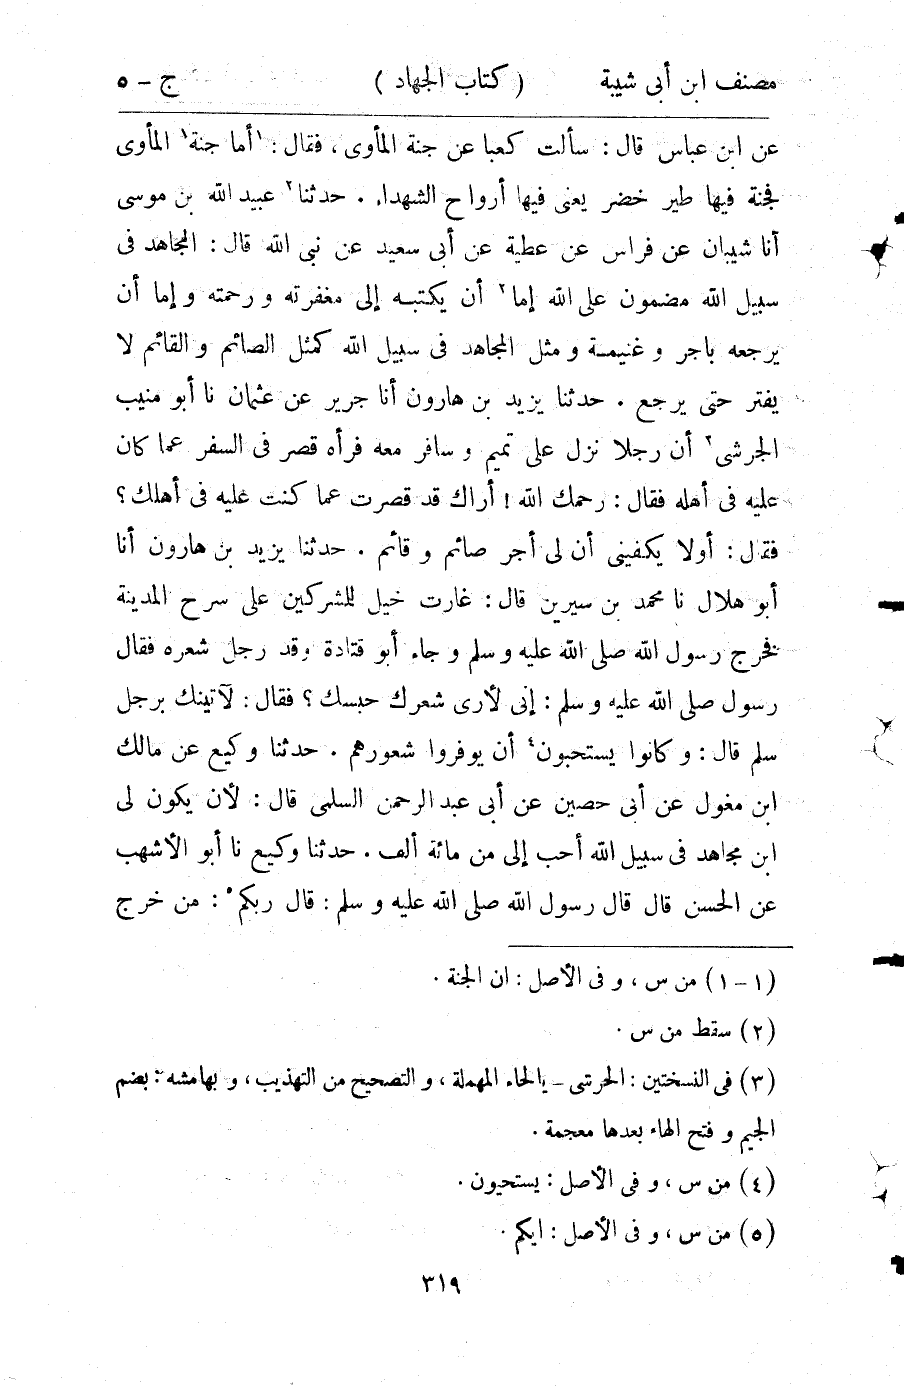 مصنف ابن أبى شيبة ( كتاب الجهاد ) ج - ٥
عن ابن عباس قال : سألت كعبا عن جنة المأوى ، فقال : ١أما جنة١ المأوى
فجنة فيها طير خضر يعنى فيها أرواح الشهداء . حدثنا٢ عبيد الله بن موسى
أنا شيبان عن فراس عن عطية عن أبى سعيد عن نبى الله قال : المجاهد فى
سبيل الله مضمون على الله إما٢ أن يكتبه إلى مغفرته و رحمته و إما أن
يرجعه باجر و غنيمة و مثل المجاهد فى سبيل الله كمثل الصائم و القائم لا
يفتر حتى يرجع . حدثنا يزيد بن هارون أنا جرير عن عثمان نا أبو منيب
الجرشى٣ أن رجلا نزل على تميم و سافر معه فرأه قصر فى السفر عما كان
عليه فى أهله فقال : رحمك الله ! أراك قد قصرت عما كنت عليه فى أهلك ؟
فقال : أولا يكفينى أن لى أجر صائم و قائم . حدثنا يزيد بن هارون أنا
أبو هلال نا محمد بن سيرين قال : غارت خيل للشركين على سرح المدينة
فخرج رسول الله صلى الله عليه و سلم و جاء أبو قتادة وقد رجل شعره فقال
رسول صلى الله عليه و سلم : إنى لأرى شعرك حبسك ؟ فقال : لآتينك برجل
سلم قال : و كانوا يستحبون٤ أن يوفروا شعورهم . حدثنا وكيع عن مالك
ابن مغول عن أبى حصين عن أبى عبد الرحمن السلمى قال : لأن يكون لى
ابن مجاهد فى سبيل الله أحب إلى من مائة ألف . حدثنا وكيع نا أبو الأشهب
عن الحسن قال قال رسول الله صلى الله عليه و سلم : قال ربكم٥ : من خرج
(١-١) من س ، و فى الأصل : ان الجنة .
(٢) سقط من س .
(٣) فى النسختين : الحرشى - بالحاء المهملة ، و التصحيح من التهذيب ، و بهامشه : بضم
الجيم و فتح الهاء بعدها معجمة .
(٤) من س ، و فى الأصل : يستحيون .
(٥) من س ، و فى الأصل : ايكم .
٣١٩